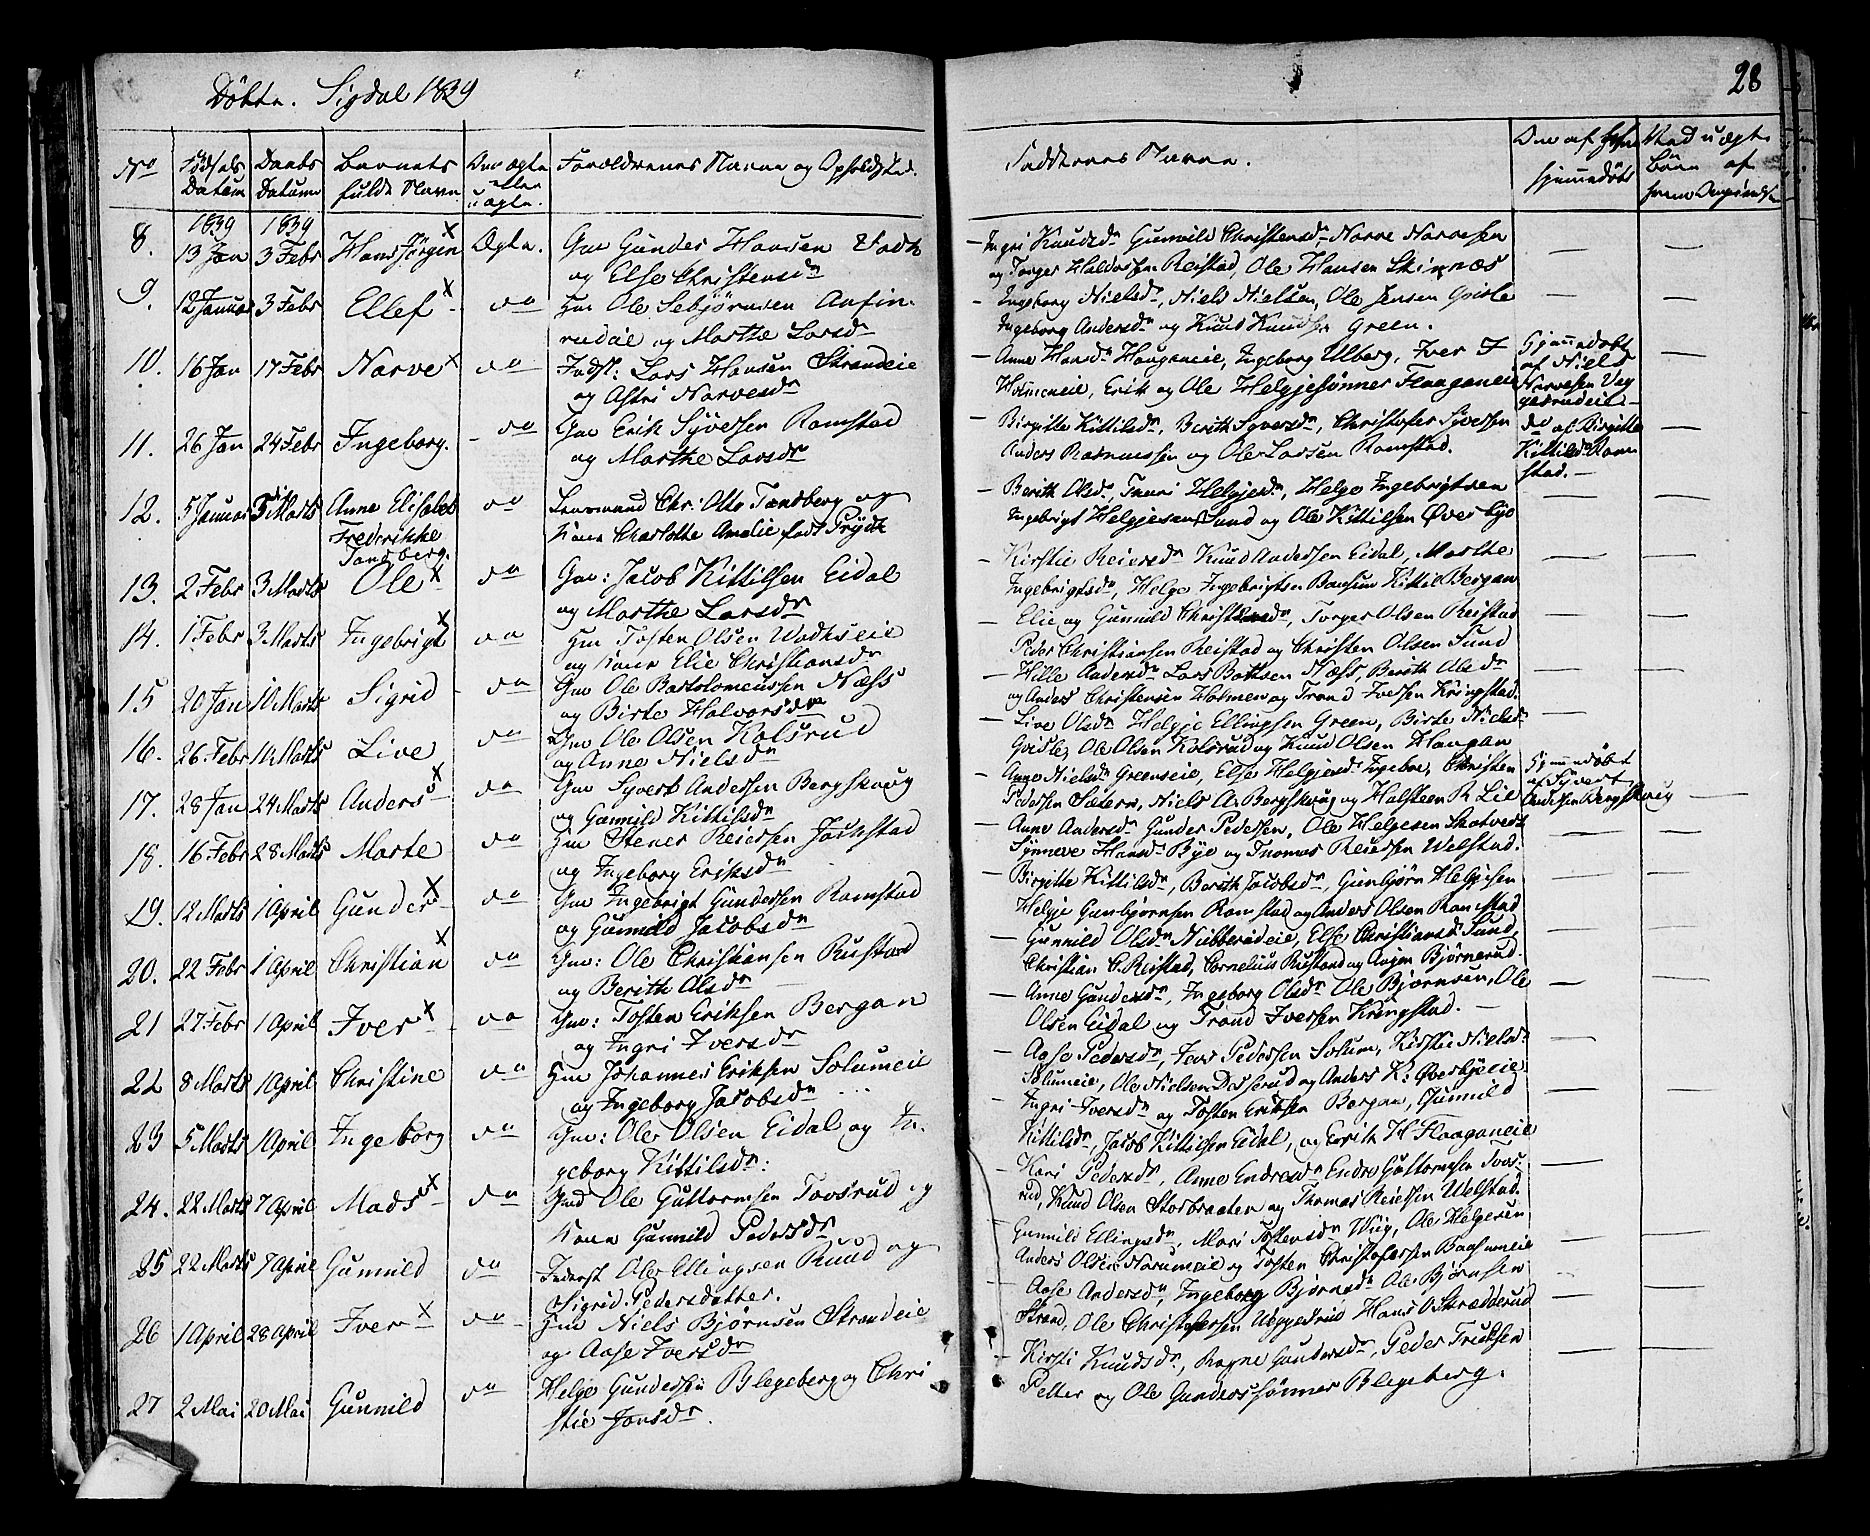 Døbte. Sigdal 1839
28
No
Fødsels Datum
Daabs Datum
Barnets fulde Navn
Om ægte eller uægte.
Forældrenes Navne og Opholdsted.
Faddernes Navne.
Om af hjemmedøbt
8. 1839 13 Jan 1839 3 Febr Hans Jörgin x Ægte. Gm Gunder Hansen
og Else Christensdr
Ingri Knudsdr Gunnild Christensdr Narve Narvesen
og Torger Haldorsen Reistad, Ole Hansen Skinnæs
9. 12 Januar 3 Febr Ellef x do Hm Ole Sebjørnsen Anfin-
rudeie og Marthe Larsdr
Ingeborg Nielsdr, Niels Nielsen, Ole Jensen Gvisle
Ingeborg Andersdr og Knud Knudsen Green.
10. 16 Jan 17 Febr Narve x do Indst: Lars Hansen Strandeie
og Astri Narvesdr
Anne Hansdr Haugeneie, Ingeborg Ulberg, Iver I
Holmeneie, Erik og Ole Helgjesønner Flaaganeie
Hjemmedøbt af Niels Narvesen
11. 26 Jan 24 Febr Ingeborg. do Gm Erik Syversen Ramstad
og Marthe Larsdr
Birgitte Kittilsdr, Berith Syversdr, Christofer Syversen
Anders Rasmussen og Ole Larsen Ramstad.
do af Birgitte Kittilsdr Ramstad.
12. 5 Januar 3 Marts Anne Elisabet
Frederikke
Tandberg.
do Lensmand Chr: Otto Tandberg og
Kone Charlotte Amalie født Prydtz
Berith Olsdr, Thuri Helgjesdr, Helge Ingebrigtsen
Ingebrigt Helgjesen Sund og Ole Kittilsen Øverbye
13. 2 Febr 3 Marts Ole x do Gm: Jacob Kittilsen Eidal
og Marthe Larsdr
Kirstie Reiersdr Knud Andersen Eidal, Marthe
Ingebrigtsdr, Helge Ingebrigtsen Baasum Kittil Bergan
14. 1 Febr 3 Marts Ingebrigt x do Hm Tosten Olsen
og Kone Elie Christiansdr
Elie og Gunnild Christensdr, Torger Olsen Reistad
Peder Christiansen Reistad og Christen Olsen Sund
15 20 Jan 10 Marts Sigrid do Gm Ole Bartolomeussen Næss
og Birte Halvorsdr
Hille Andersdr Lars Bottsen Næss, Berith Olsdr
og Anders Christensen Holmen og Trond Iversen Kringstad.
16. 26 Febr 10 Marts Live do Gm Ole Olsen Kolsrud
og Anne Nielsdr
Live Olsdr Helgje Ellingsen Green, Birte Nielsdr
Gvisle, Ole Olsen Kolsrud og Knud Olsen Haugan
17. 28 Jan 24 Marts Anders x do Gm Syvert Andersen Bergskaug
og Gunnild Kittilsdr
Anne Nielsdr Greenseie, Else Helgjesdr Ingebor, Christen
Pedersen Sætern, Niels A. Bergskaug og Halsteen R. Lie
Hjemmedøbt af Syvert Andersen Bergskaug
18. 16 Febr 28 Marts Marte do Hm Stener Reiersen
og Ingeborg Eriksdr
Anne Andersdr Gunder Pedersen, Ole Helgesen Skatvedt
Synneve Hansdr Bye og Thomas Reiersen Welstad.
19. 12 Marts 1 April Gunder x do Gm Ingebrigt Gundersen Ramstad
og Gunnild Jacobsdr
Birgitte Kittilsdr, Berith Jacobsdr, Gunbjørn Helgjesen
Helgje Gunbjørnsen Ramstad og Anders Olsen Ramstad
20. 22 Febr 1 April Christian x do Gm: Ole Christiansen Rustand
og Berith Olsdr
Gunnild Olsdr Nubberudeie, Else Christiansdr Sund,
Christian C. Reistad, Cornelius Rustand og Aagen Bjørnerud.
21 27 Febr 1 April Iver x do Gm: Tosten Eriksen Bergan
og Ingri Iversdr
Anne Gundersdr, Ingeborg Olsdr Ole Bjørnsen, Ole
Olsen Eidal og Trond Iversen Kringstad.
22 8 Marts 1 April Christine do Hm Johannes Eriksen Solumeie
og Ingeborg Jacobsdr
Aase Pedersdr, Iver Pedersen Solum, Kirstie Nielsdr
Solumeie, Ole Nielsen og Anders K: Øverbyeeie
23 5 Marts 1 April Ingeborg do Gm: Ole Olsen Eidal og In-
geborg Kittilsdr:
Ingri Iversdr og Tosten Eriksen Bergan, Gunnild
Kittilsdr, Jacob Kittilsen Eidal, og Erik H. Flaaganeie
24. 22 Marts 7 April Mads x do Gmd Ole Guttormsen Tovsrud og
Kone Gunnild Pedersdr
Kari Pedersdr, Anne Endresdr Endre Guttormsen Tovs-
rud, Knud Olsen Storbraaten og Thomas Reiersen Welstad.
25 22 Marts 7 April Gunnild do Inderst Ole Ellingsen Ruud og
Sigrid Pedersdatter.
Gunnild Ellingsdr, Mari Tostensdr Wiig, Ole Helgesen
Anders Olsen og Tosten Christofersen Baasumeie
26 1 April 28 April Iver x do Hm Niels Bjørnsen Strandeie
og Aase Iversdr
Aase Andersdr, Ingeborg Bjørnsdr Ole Bjørnsen
Strand, Ole Christofersen Hans O Strædderud
27 2 Mai 20 Mai Gunnild do Helge Gundersen Blegeberg og Chri
stie Jonsdr.
Kirsti Knudsdr, Ragne Gundersdr, Peder Truelsen
Petter og Ole Gunderssønner Blegeberg.